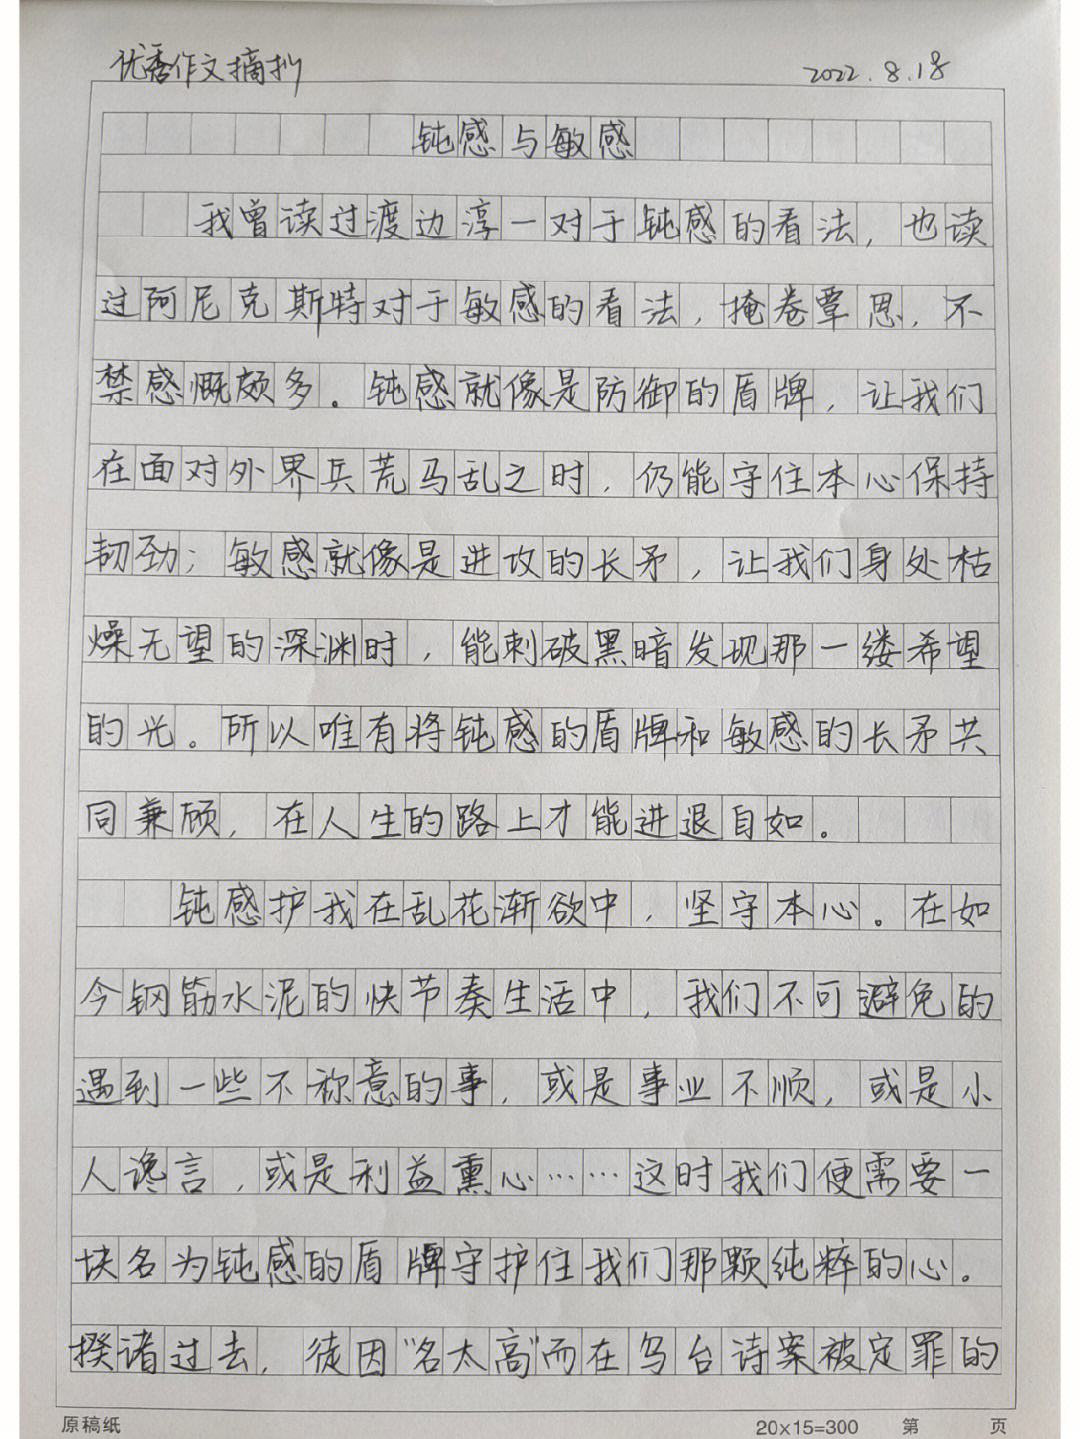 优秀作文摘抄
2022.8.18
钝感与敏感
我曾读过渡边淳一对于钝感的看法，也读
过阿尼克斯特对于敏感的看法，掩卷覃思，不
禁感慨颇多。钝感就像是防御的盾牌，让我们
在面对外界兵荒马乱之时，仍能守住本心保持
韧劲；敏感就像是进攻的长矛，让我们身处枯
燥无望的深渊时，能刺破黑暗发现那一缕希望
的光。所以唯有将钝感的盾牌和敏感的长矛共
同兼顾，在人生的路上才能进退自如。
钝感护我在乱花渐欲中，坚守本心。在如
今钢筋水泥的快节奏生活中，我们不可避免的
遇到一些不称意的事，或是事业不顺，或是小
人谗言，或是利益熏心……这时我们便需要一
块名为钝感的盾牌守护住我们那颗纯粹的心。
揆诸过去，徒因“名太高”而在乌台诗案被定罪的
原稿纸
20×15=300 第 页